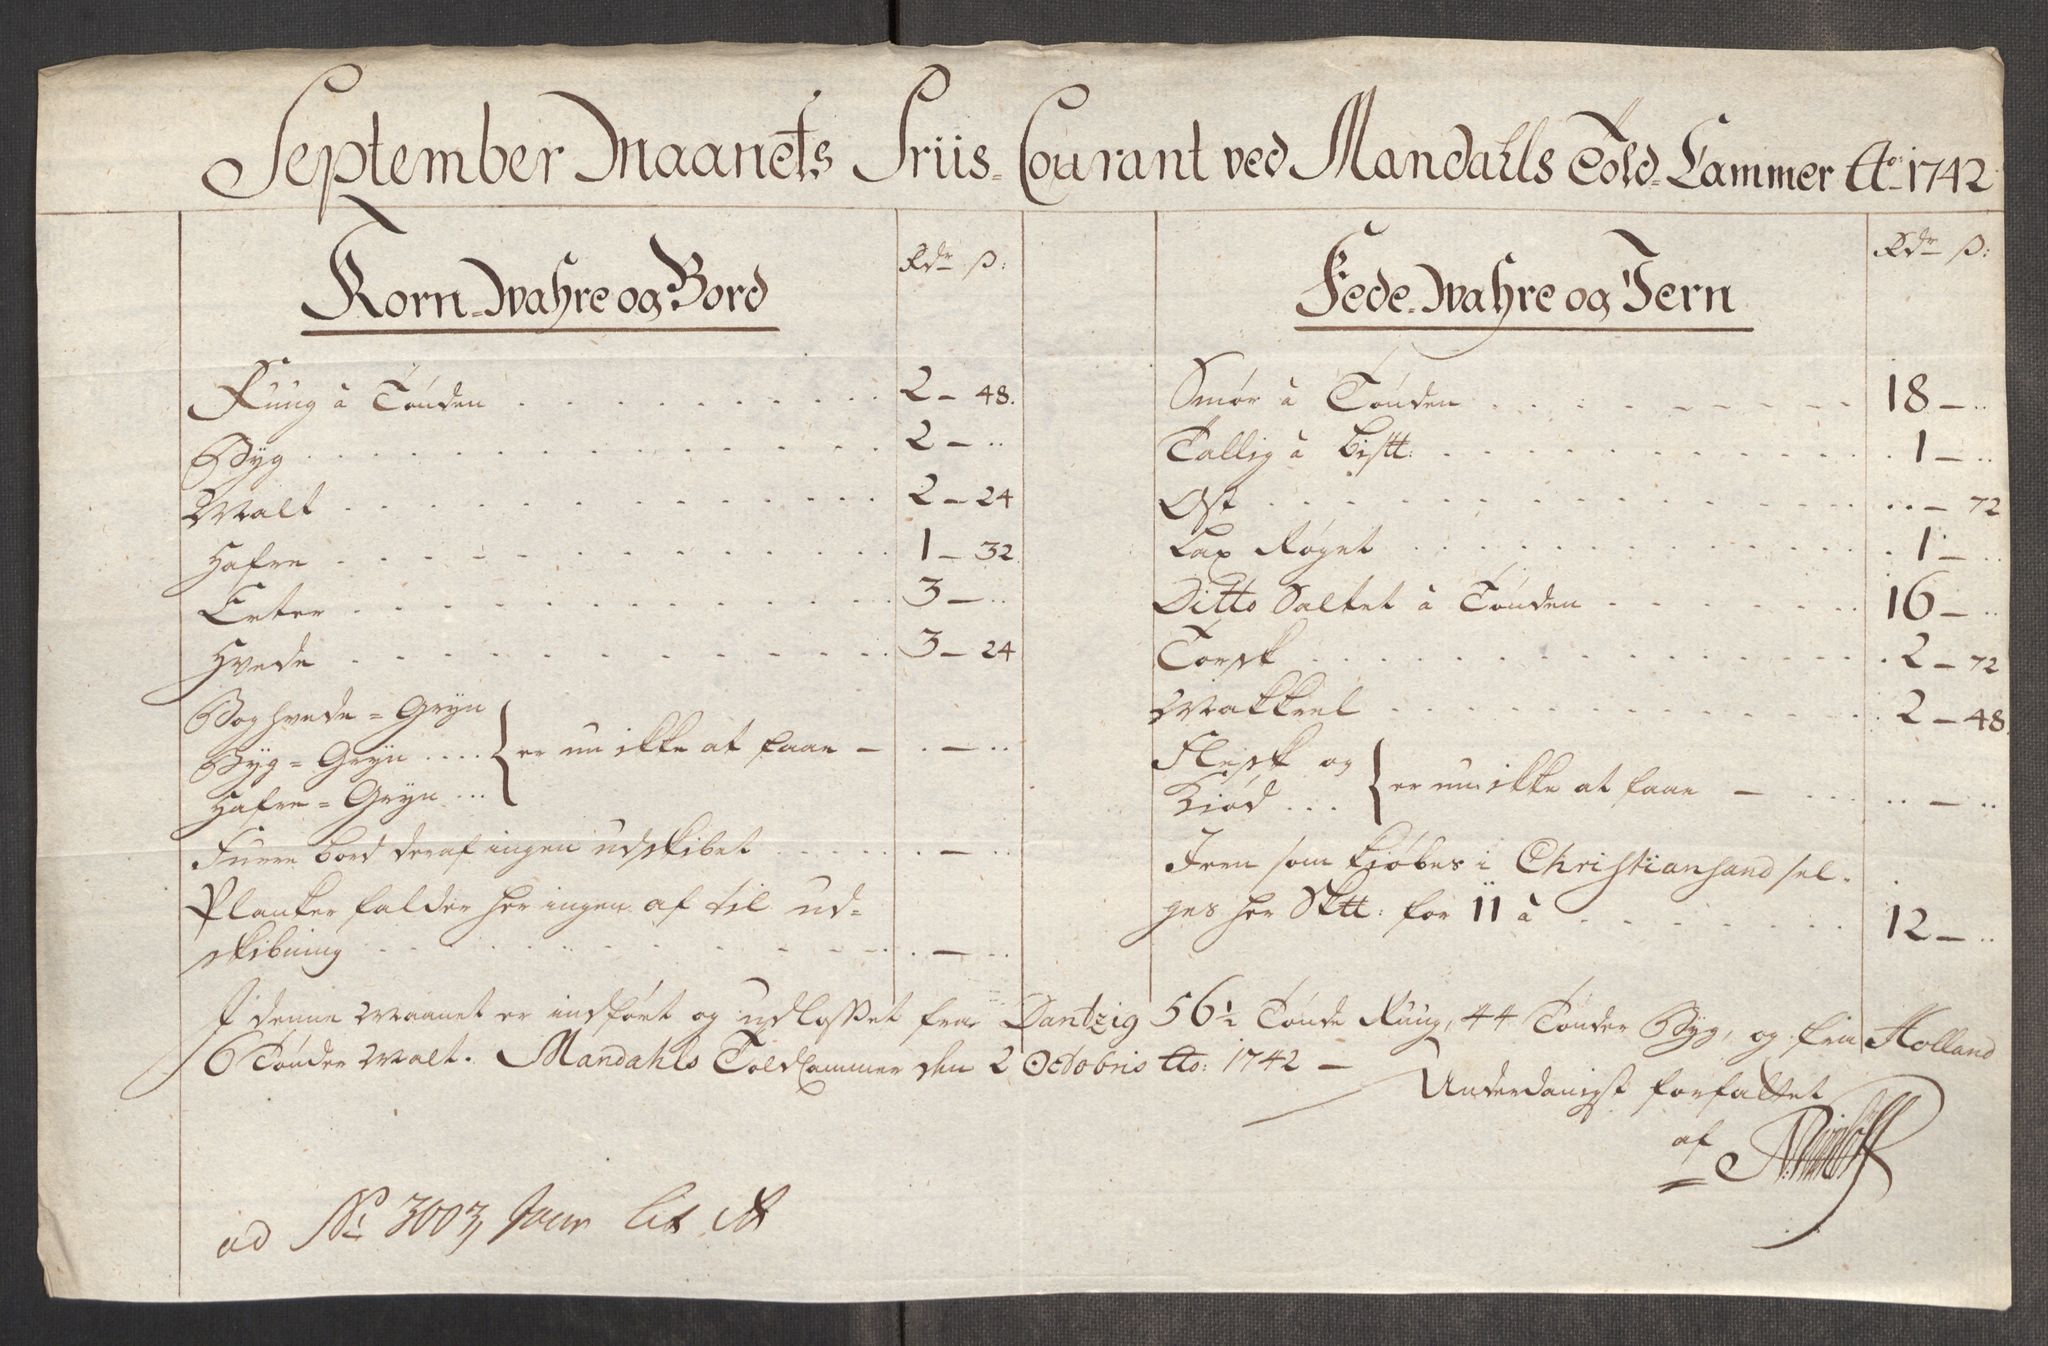 September Maanets Priis-Courant ved Mandahls Told-Cammer Ao. 1742
Korn-Wahre og Bord
Rdr ß:
Ruug à Tønden 2 – 48.
Byg 2 – ..
Malt 2 – 24
Hafre 1 – 32
Erter 3 – ..
Hvede 3 – 24
Boghvede = Gryn
Byg = Gryn .... } er nu ikke at faae – . – ..
Hafre = Gryn ...
Furre bord deraf ingen udskibet . – ..
Planker falder her ingen af til ud-
skibning . – ..
Fede-Wahre og Jern
Rdr ß:
Smør à Tønden 18 – ..
Tallig à Bistt: 1 – ..
Ost .. – 72
Lax Røget 1 – ..
Ditto Saltet à Tønden 16 – ..
Torsk 2 – 72
Makkrel 2 – 48.
Flesk og
Kiød ... } er nu ikke at faae – .. – ..
Jern som kiøbes i Christiansand sel-
ges her Sktt: for 11 à 12 – ..
I denne Maanet er indført og udlosset fra Dantzig 56½ Tønde Ruug, 44 Tønder Byg, og fra Holland
6 Tønder Malt. Mandahls Told Cammer den 2 Octobris Ao: 1742 –
Underdanigst forfattet
af
ad No 3003, Jour Lit A